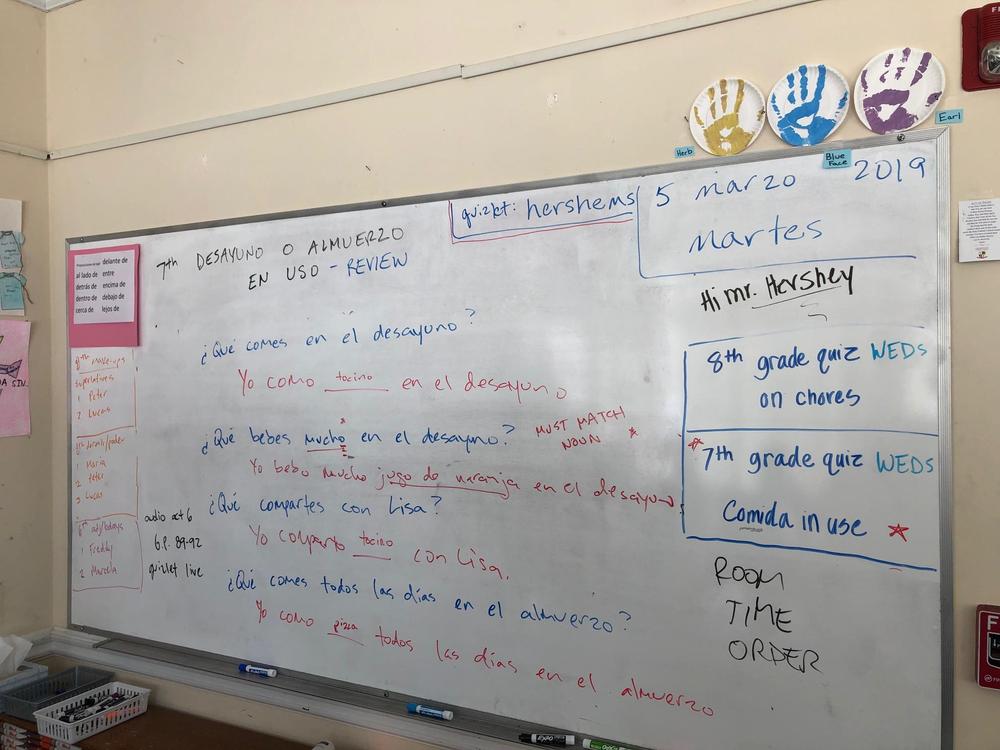 Herb
Blue Face
Earl
quizlet: hershems
5 marzo 2019
martes
Hi mr. Hershey
7th DESAYUNO O ALMUERZO
EN USO - REVIEW
delante de
al lado de entre
detrás de encima de
dentro de debajo de
cerca de lejos de
¿Qué comes en el desayuno?
Yo como tocino en el desayuno
¿Qué bebes mucho* en el desayuno?
MUST MATCH
NOUN *
Yo bebo mucho jugo de naranja en el desayuno
¿Qué compartes con Lisa?
Yo comparto tocino con Lisa.
¿Qué comes todos las días en el almuerzo?
Yo como pizza todos las días en el almuerzo
8th make-ups
superlatives
1 Peter
2 Lucas
1 Maria
2 Peter
3 Lucas
1 Freddy
2 Marcela
audio act 6
6.P. 89-92
quizlet live
8th grade quiz WEDS
on chores
* 7th grade quiz WEDS
Comida in use
ROOM
TIME
ORDER
EXPO